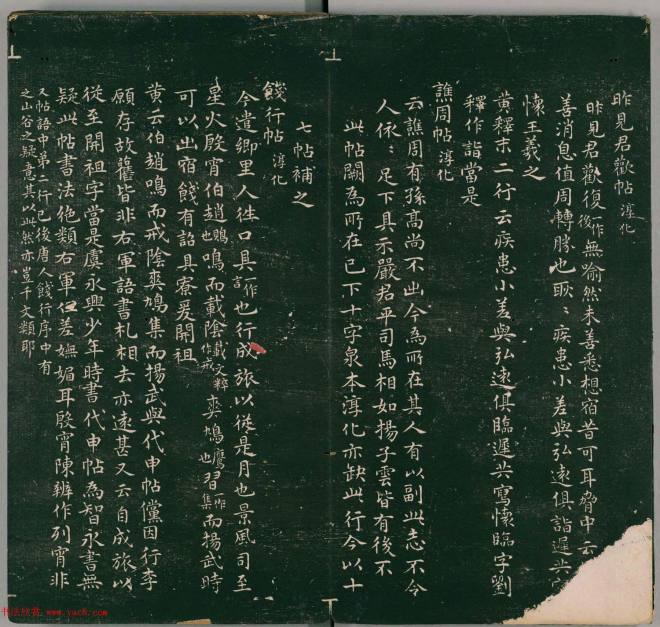 昨見君歡帖淳化
昨見君歡復一作後無喻然未善悉想宿昔可耳脅中云
善消息值周轉勝也耿〻疾患小差與弘遠俱詣遲共
懷王羲之
黃釋末二行云疾患小差與弘遠俱臨遲共寫懷臨字劉
釋作詣當是
譙周帖淳化
云譙周有孫高尚不出今為所在其人有以副此志不令
人依〻足下具示嚴君平司馬相如揚子雲皆有後不
此帖闕為所在已下十字泉本淳化亦缺此行今以十
七帖補之
餞行帖淳化
今遣鄉里人往口具一作言也行成旅以從是月也景風司至
星火殷宵伯趙鵙也鳴而載陰載文粹作戒爽鳩鷹也習一作集而揚武時
可以出宿餞有詔具寮爰開祖
黃云伯趙鳴而戒陰爽鳩集而揚武與代申帖儻因行李
願存故舊皆非右軍語書札相去亦遠甚又云自成旅以
從至開祖字當是虞永興少年時書代申帖為智永書無
疑此帖書法絕類右軍但差嫵媚耳殷宵陳辨作列宵非
又帖語中第二行已後唐人餞行序中有
之山谷之疑意其以此然亦豈千文類耶
书法欣赏 www.yac8.com